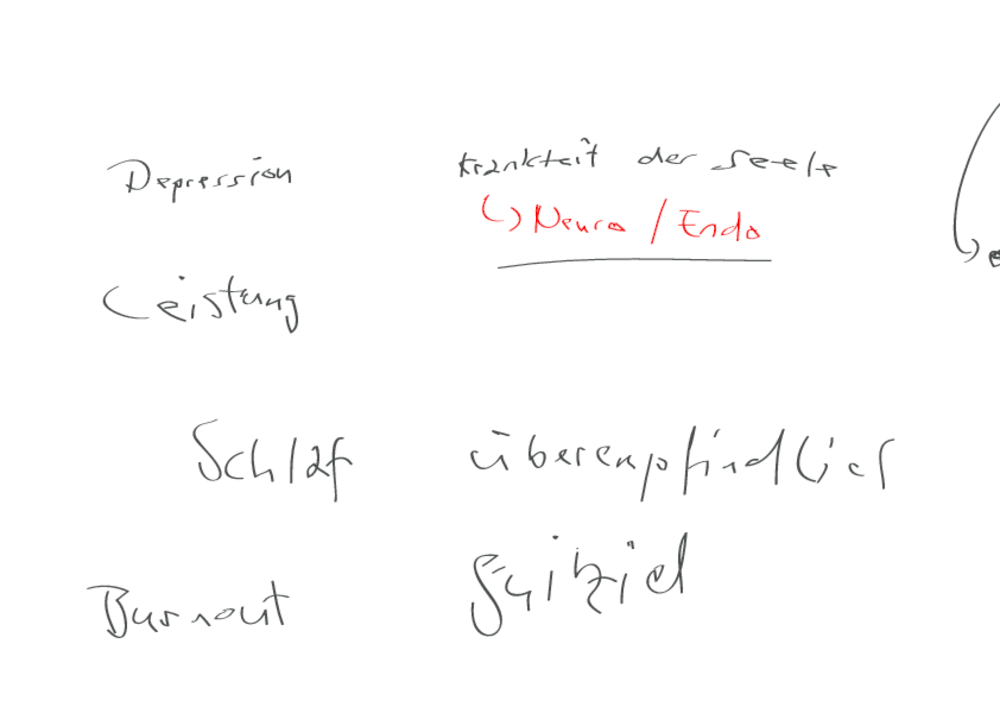 Depression Krankheit der Seele
↳ Neuro / Endo
Leistung
Schlaf überempfindlich
Burnout Suizid